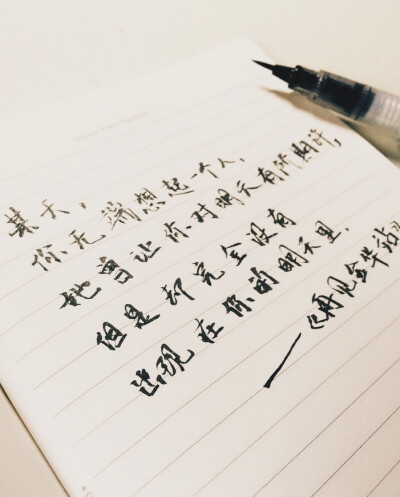 某天，
你无端想起一个人，
她曾让你对明天有所期许，
但是却完全没有
出现在你的明天里。
——《再见金华站》